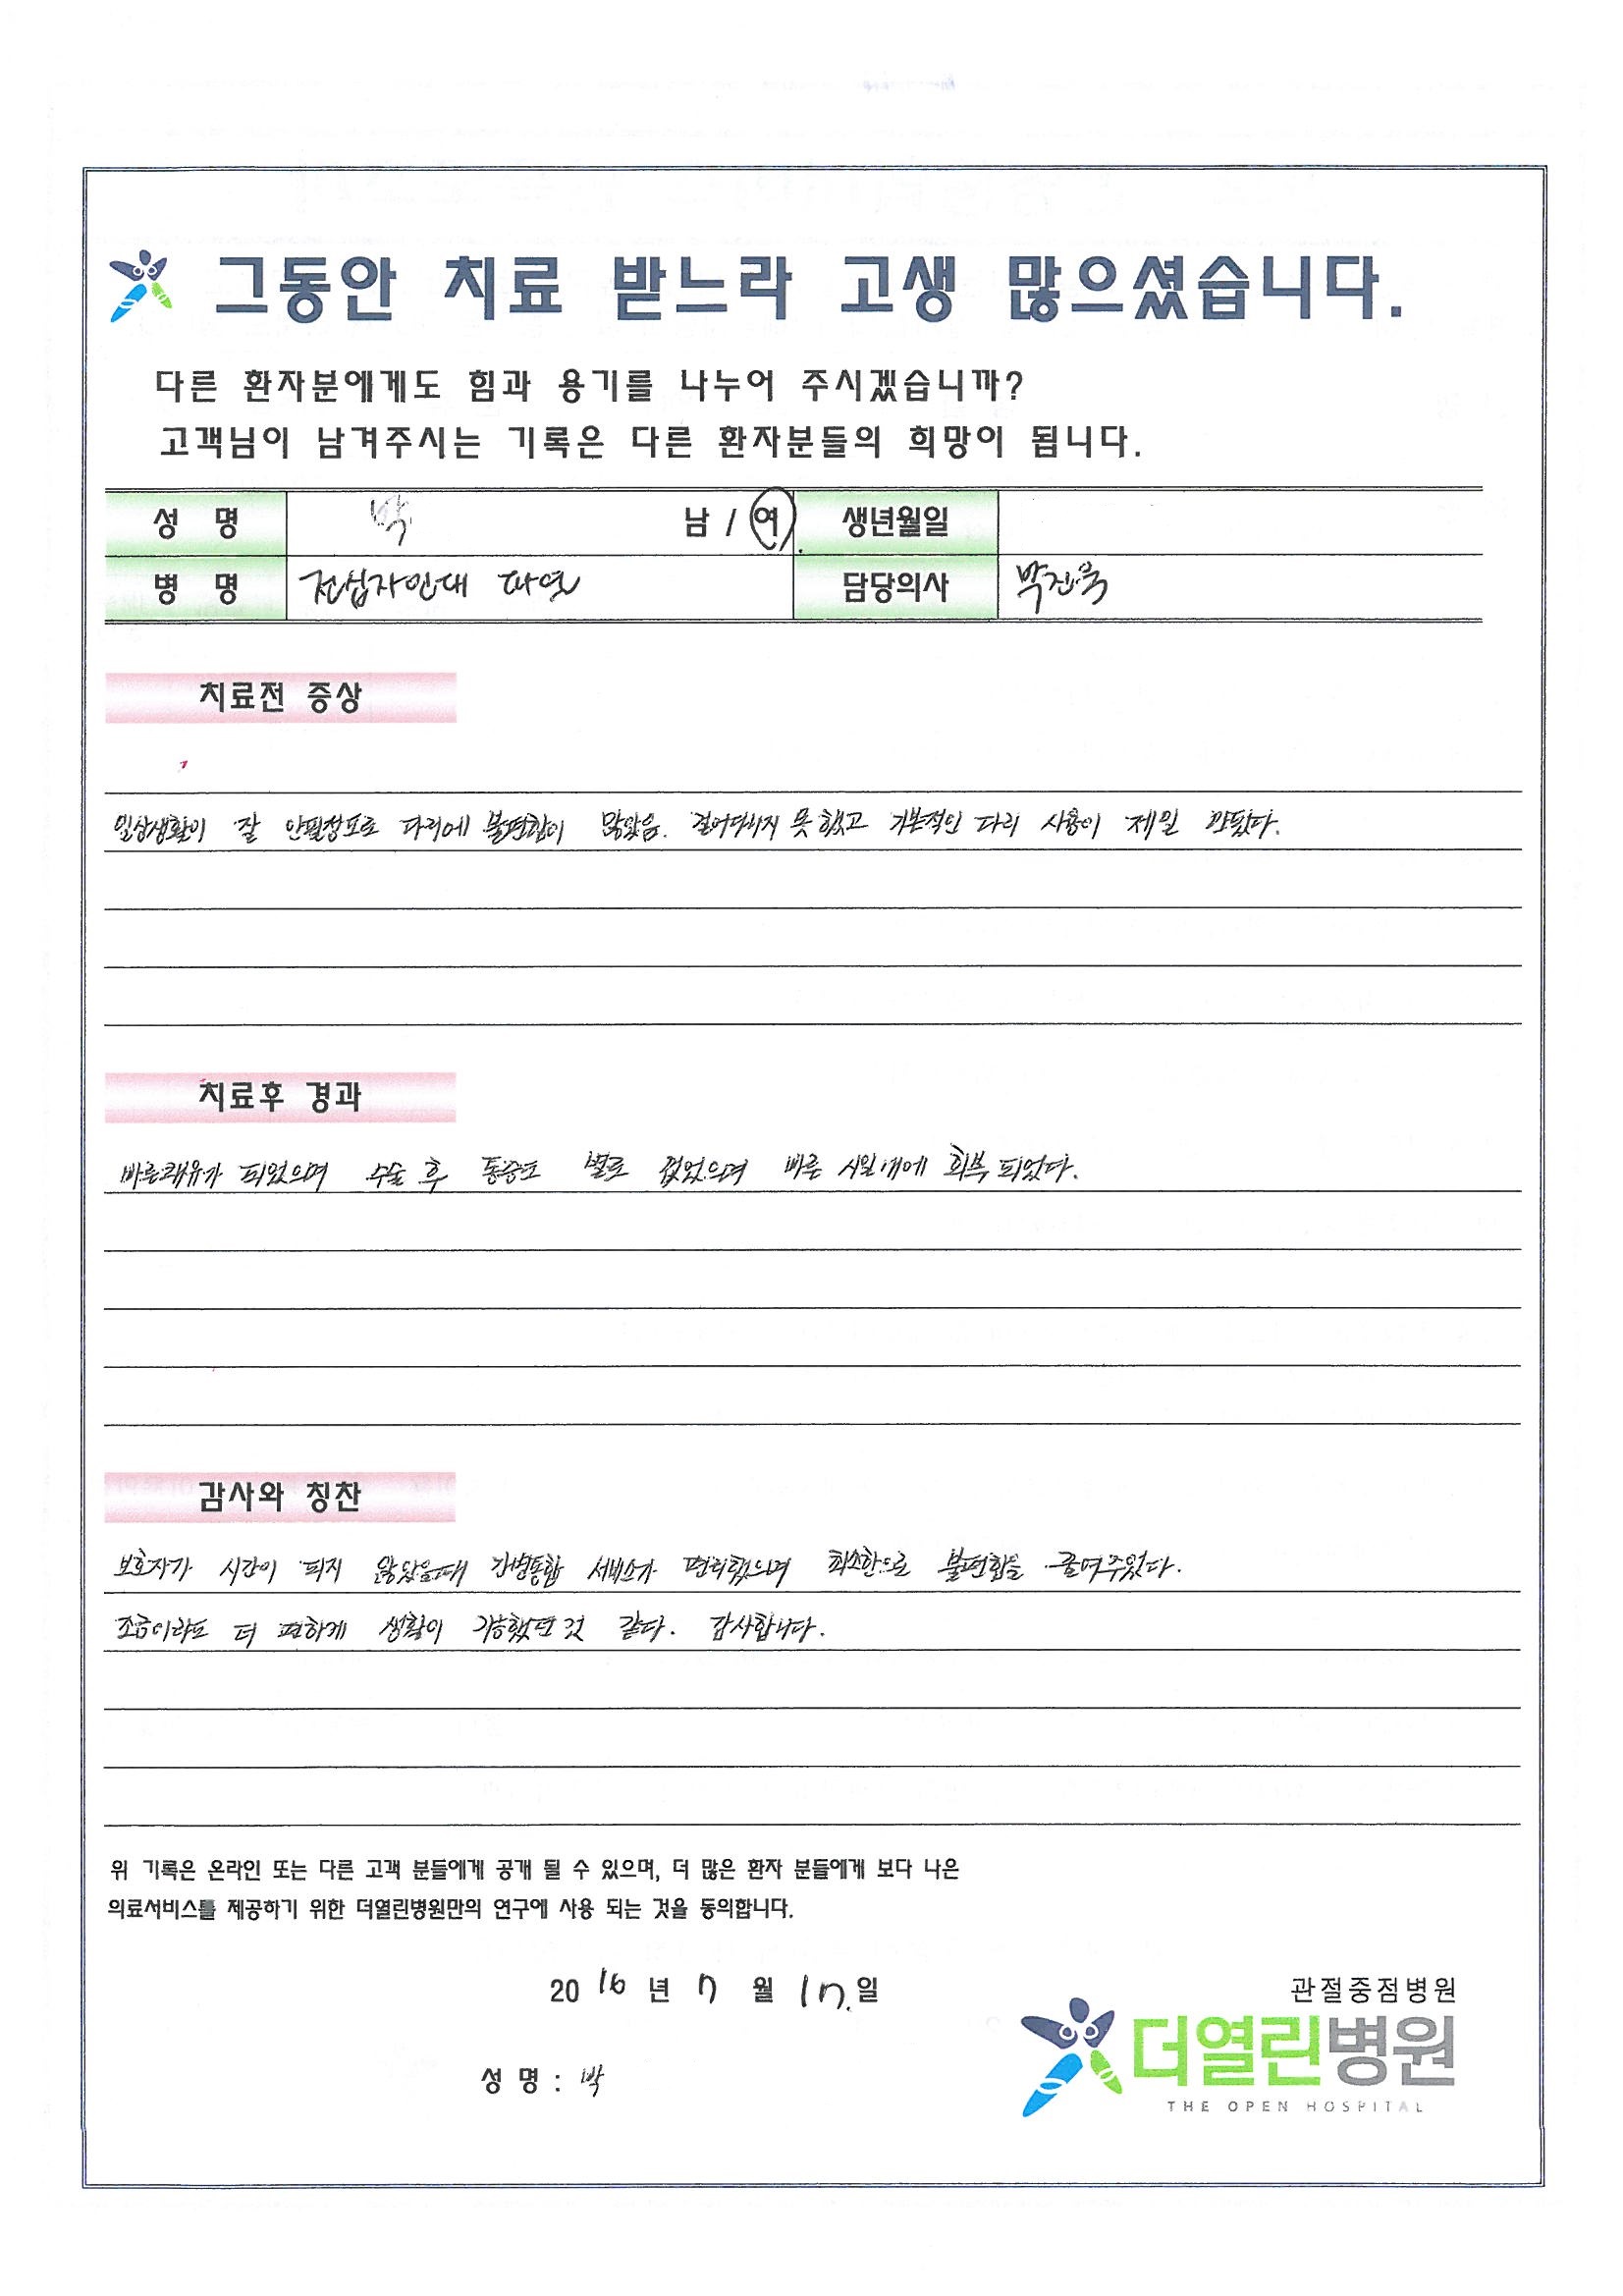 그동안 치료 받느라 고생 많으셨습니다.
다른 환자분에게도 힘과 용기를 나누어 주시겠습니까?
고객님이 남겨주시는 기록은 다른 환자분들의 희망이 됩니다.
성 명 박 남 / 여 생년월일
병 명 전십자인대 파열 담당의사 박진욱
치료전 증상
일상생활이 잘 안될정도로 다리에 불편함이 많았음. 걸어다니지 못 했고 기본적인 다리 사용이 제일 안됐다.
치료후 경과
빠른쾌유가 되었으며 수술 후 통증도 별로 없었으며 빠른 시일내에 회복 되었다.
감사와 칭찬
보호자가 시간이 되지 않았을때 간병통합 서비스가 편리했으며 최소한으로 불편함을 줄여주었다.
조금이라도 더 편하게 생활이 가능했던 것 같다. 감사합니다.
위 기록은 온라인 또는 다른 고객 분들에게 공개 될 수 있으며, 더 많은 환자 분들에게 보다 나은
의료서비스를 제공하기 위한 더열린병원만의 연구에 사용 되는 것을 동의합니다.
2016 년 7 월 17.일
관절중점병원
더열린병원
THE OPEN HOSPITAL
성 명 : 박